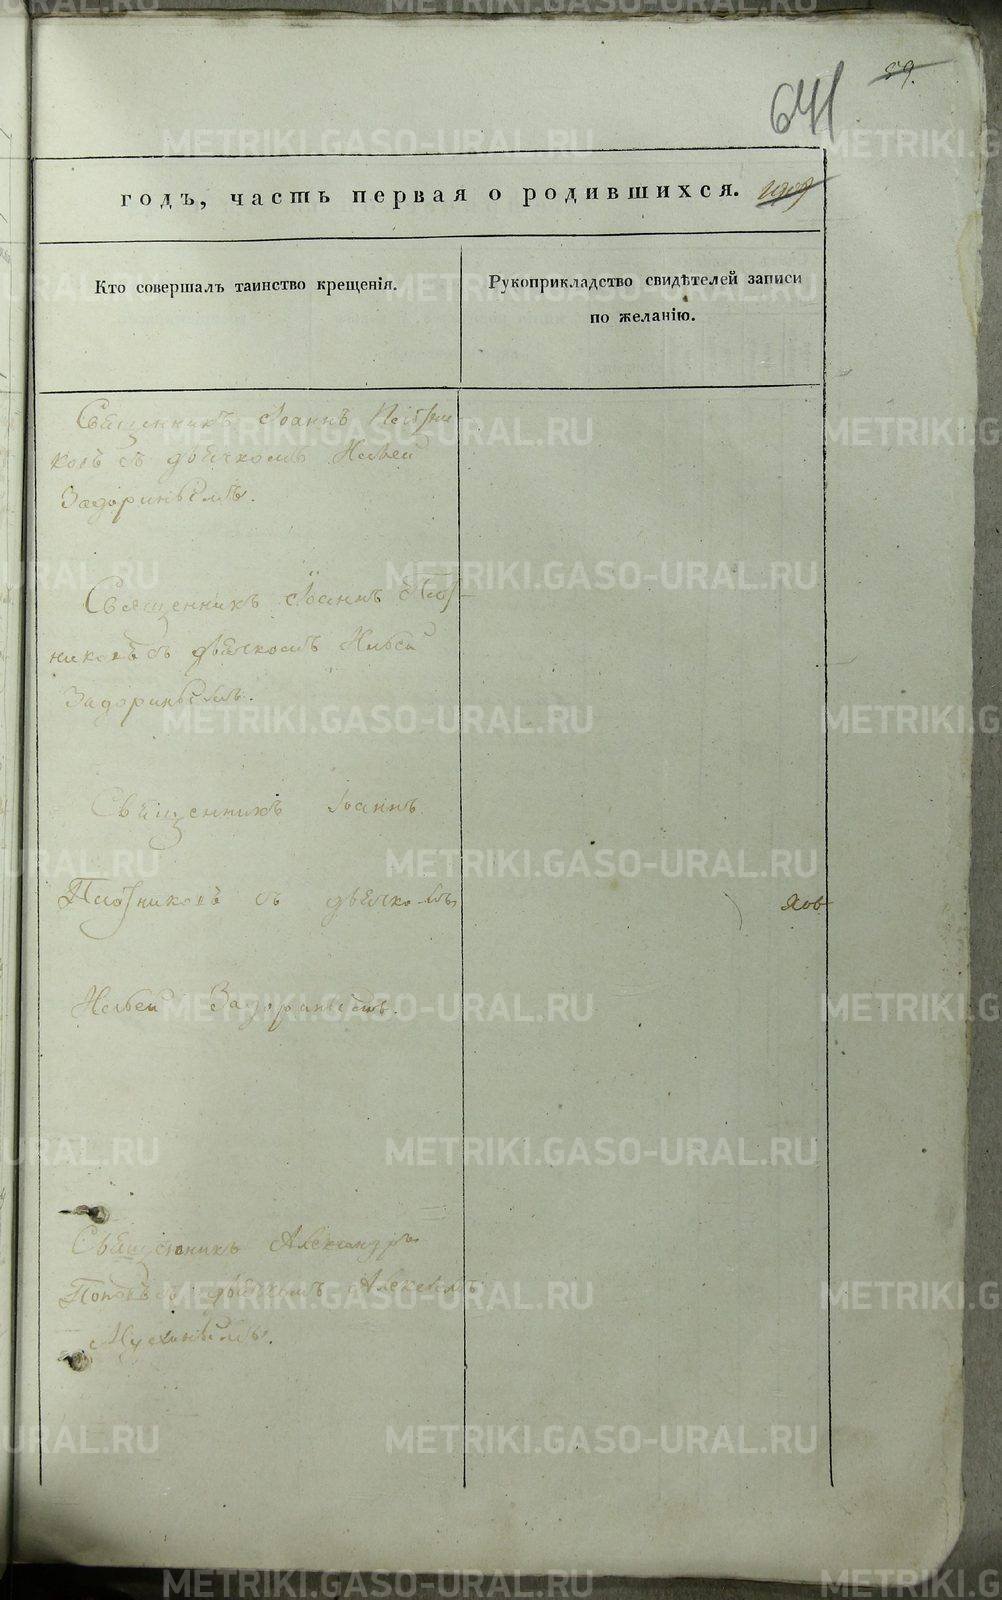 59.
641
годъ, часть первая о родившихся.
Кто совершалъ таинство крещенія.
Рукоприкладство свидѣтелей записи
по желанію.
Священникъ Іоаннъ Плотни
ковъ съ дьячкомъ
Задоринымъ.
Священникъ Іоаннъ Плот-
никовъ съ дьячкомъ
Задоринымъ.
Священникъ Іоаннъ
Плотниковъ съ дьячкомъ
Задоринымъ.
Священникъ Александръ
Поповъ съ дьячкомъ Алексѣемъ
Мухинымъ.
METRIKI.GASO-URAL.RU